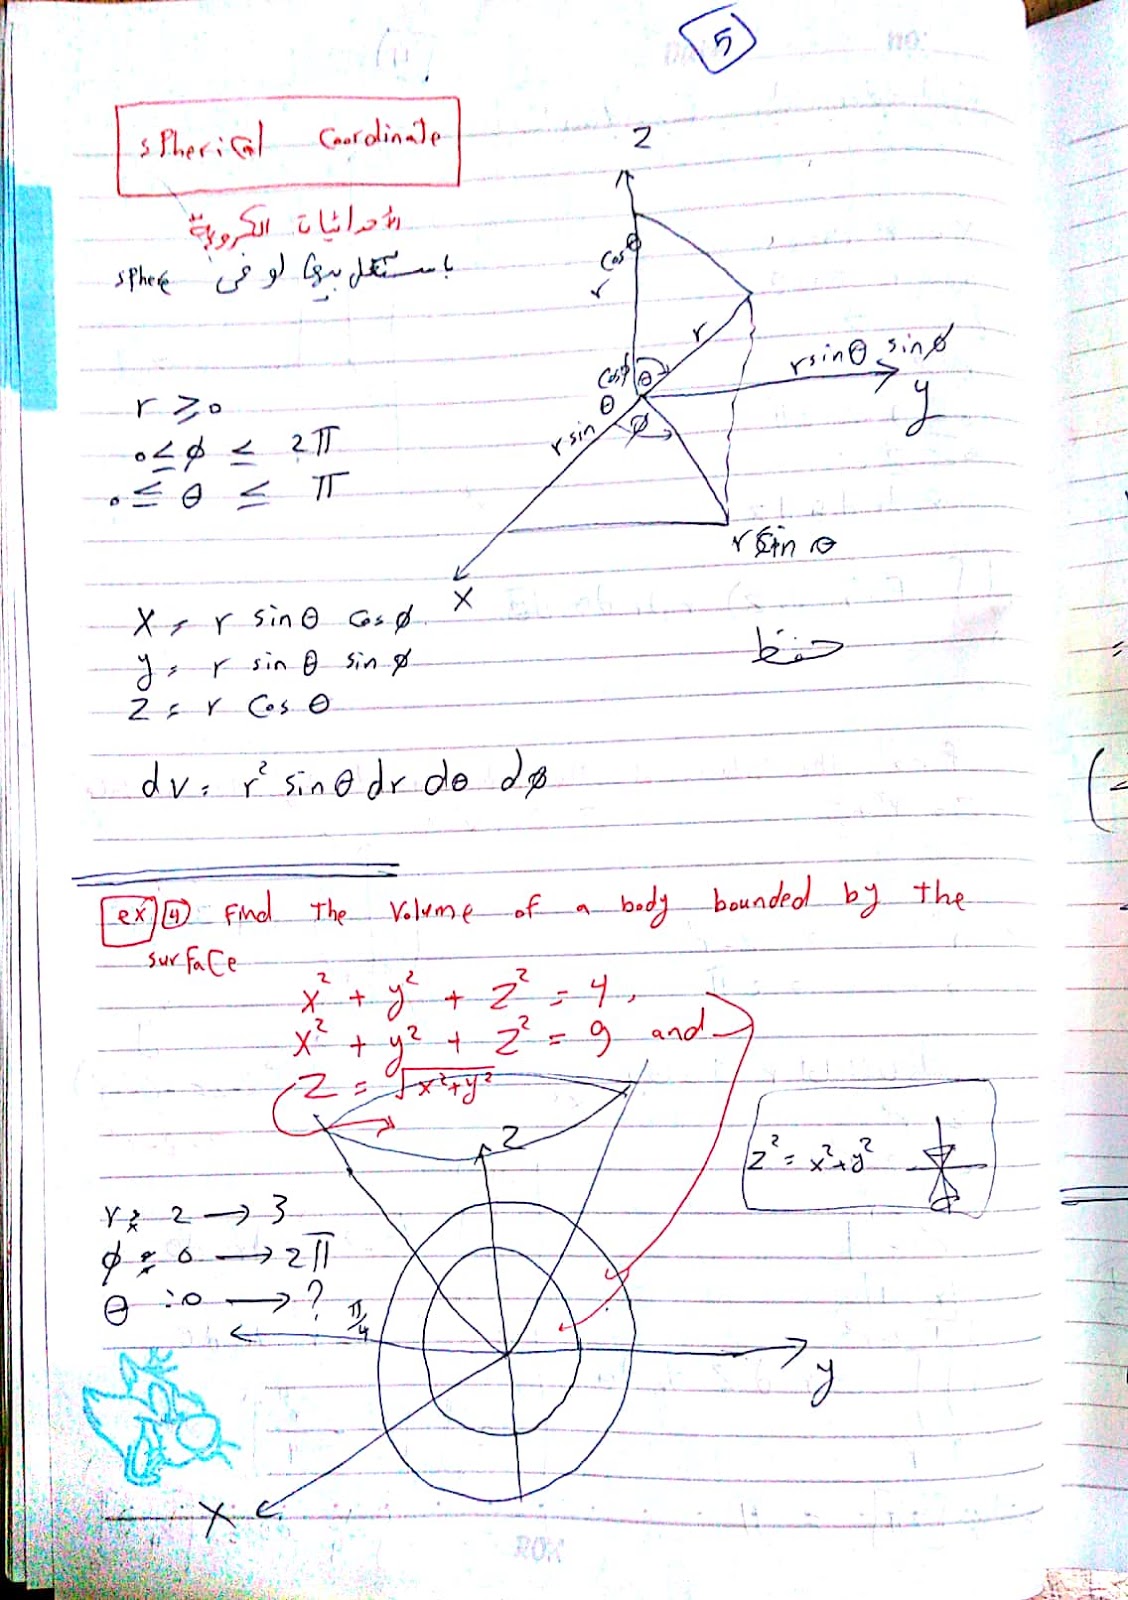 5
spherical Coordinate
الاحداثيات الكروية
باستعمل بيها لو فى sphere
Z
r cos θ
r
θ
r sin θ cos φ
φ
r sin θ sin φ
y
r sin θ
X
r ≥ 0
0 ≤ φ ≤ 2π
0 ≤ θ ≤ π
X = r sin θ cos φ
y = r sin θ sin φ
Z = r cos θ
حفظ
dv = r² sin θ dr dθ dφ
ex 4 Find The Volume of a body bounded by the
surface
x² + y² + z² = 4,
x² + y² + z² = 9 and
Z = √x²+y²
Z
z² = x²+y²
r: 2 → 3
φ: 0 → 2π
θ: 0 → ? π/4
y
X